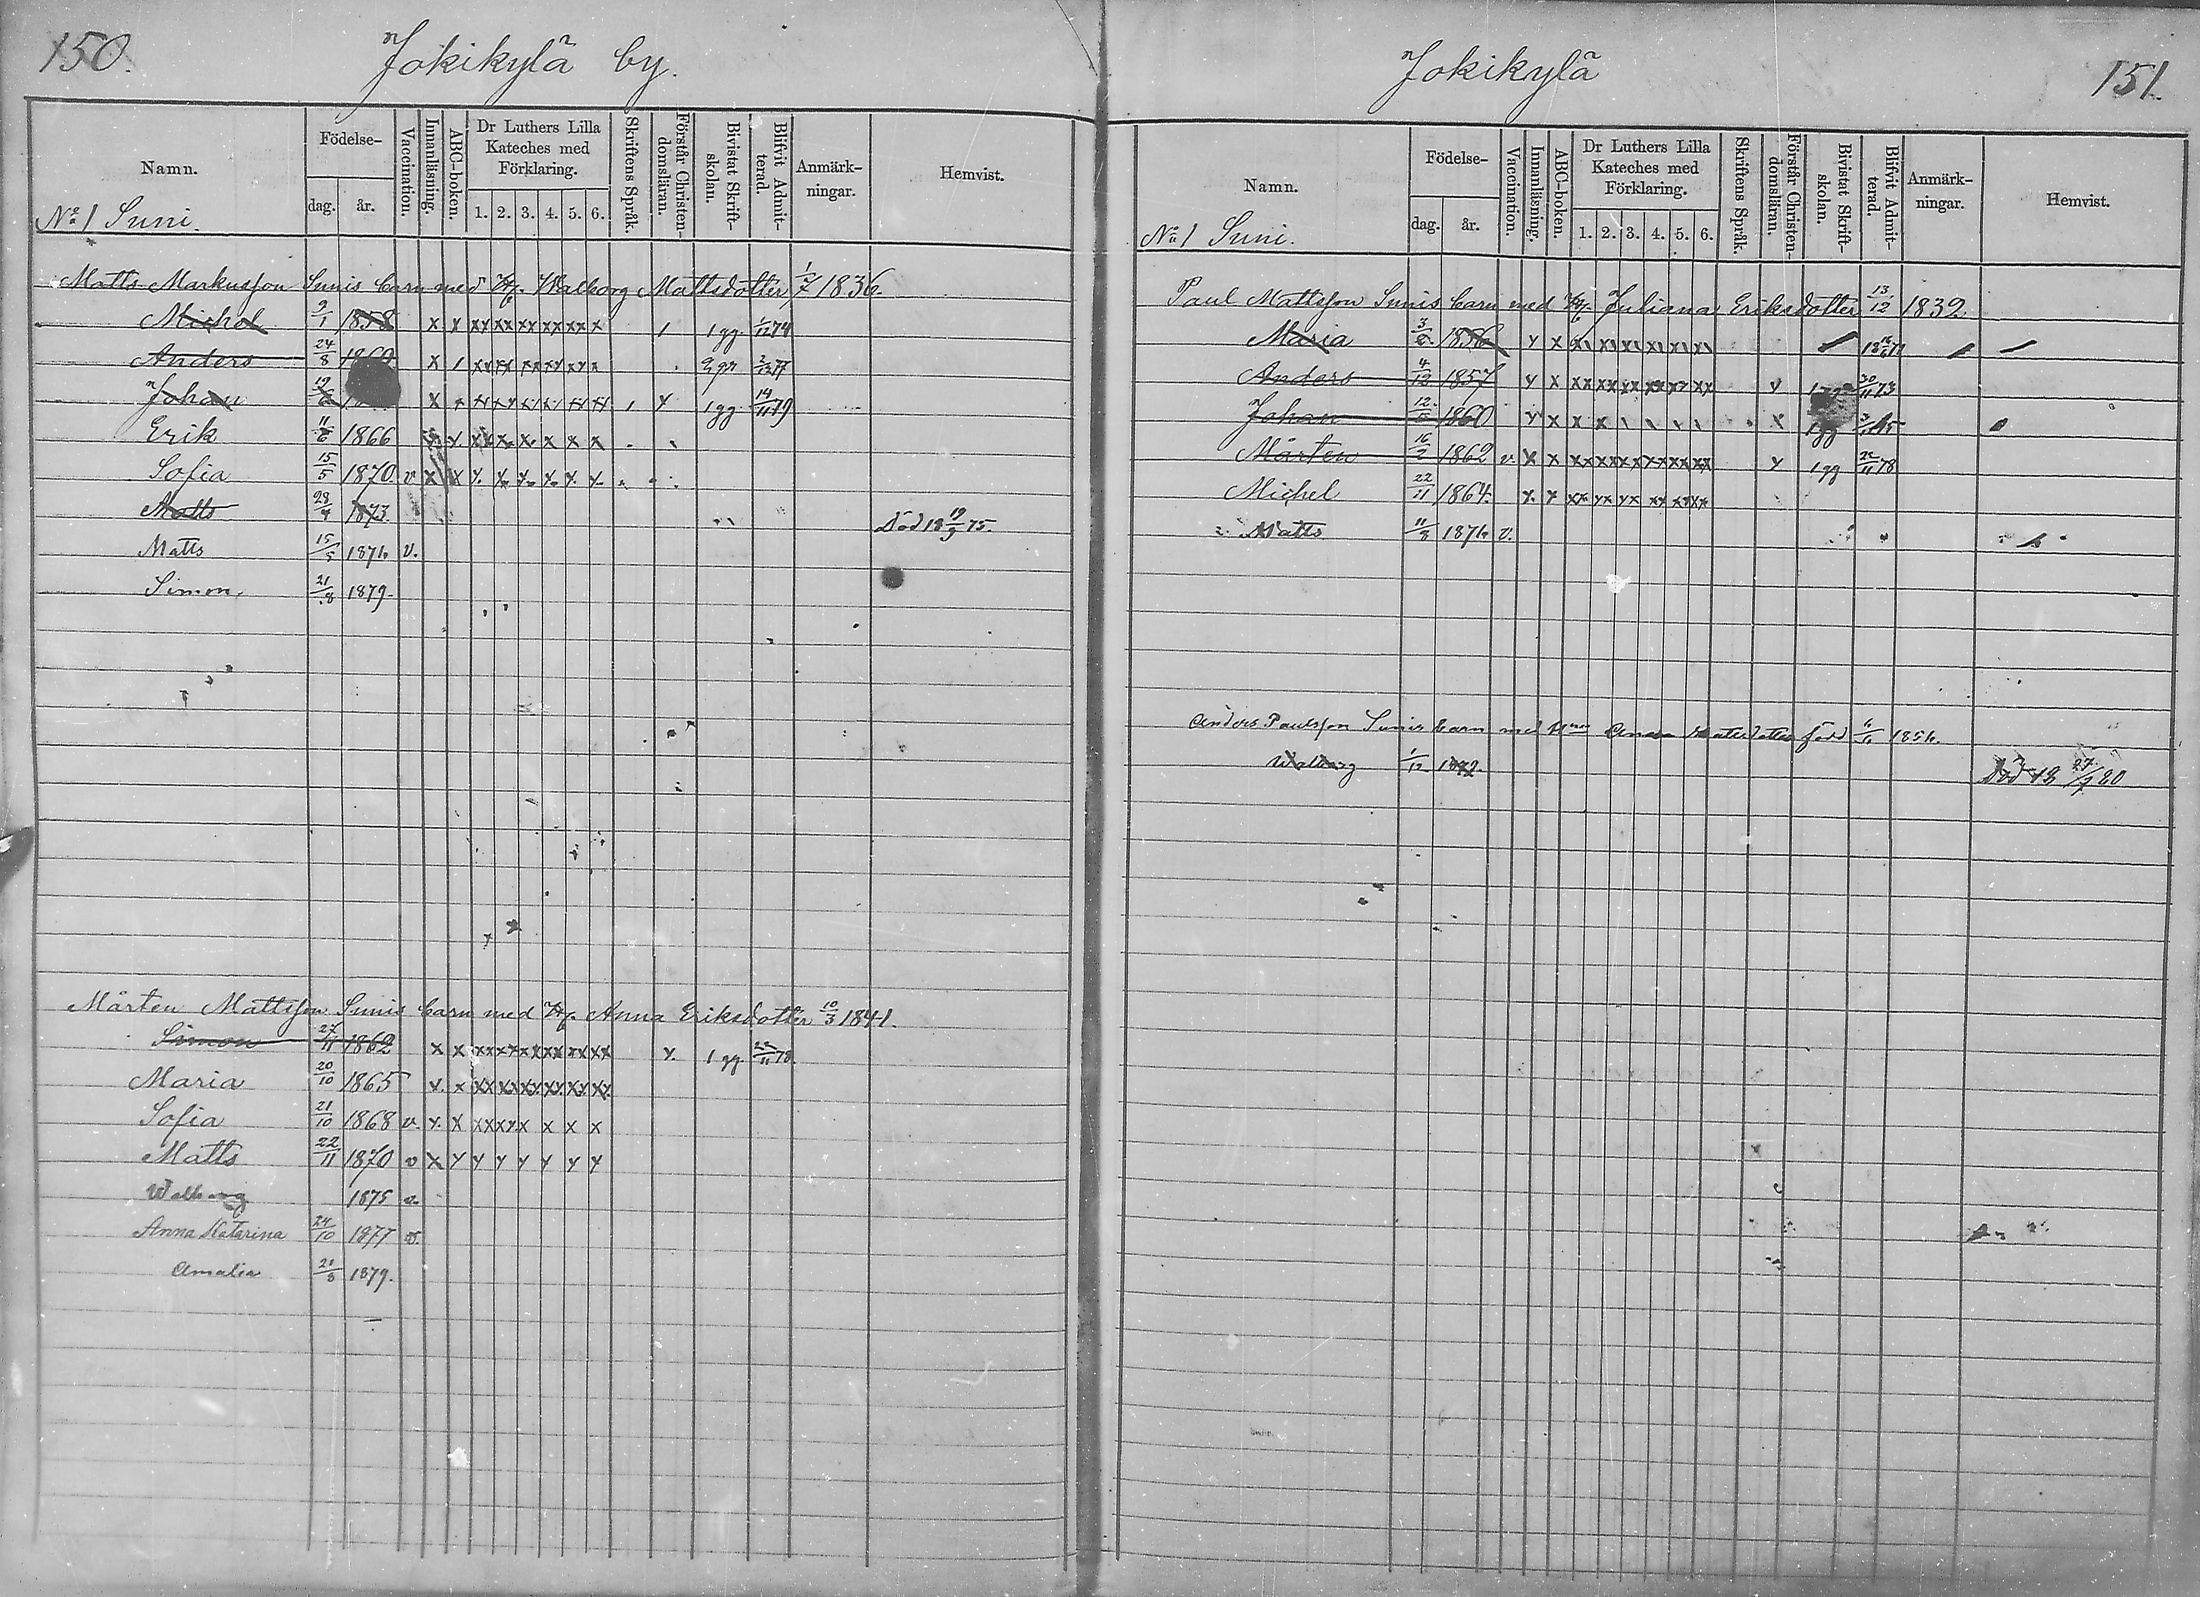 150.
Jokikylä by.
Namn.
Födelse-
dag.
år.
Vaccination.
Innanläsning.
ABC-boken.
Dr Luthers Lilla
Kateches med
Förklaring.
1. 2. 3. 4. 5. 6.
Skriftens Språk.
Förstår Christen-
domsläran.
Bivistat Skrift-
skolan.
Blifvit Admit-
terad.
Anmärk-
ningar.
Hemvist.
No 1 Suni.
Matts Markusson Sunis barn med H. Walborg Mattsdotter 1/7 1836.
Michel 9/1 1858 x x xx xx xx xx xx x 1 1 gg 1/12 74
Anders 24/8 1860 x
Johan 1 gg 14/11 79
Erik 11/6 1866
Sofia 15/5 1870 v x x
Matts 28/4 1873. Död 18 19/9 75.
Matts 15/5 1876 v.
Simon 21/8 1879.
Mårten Mattsson Sunis barn med H. Anna Eriksdotter 10/3 1841.
Simon 27/11 1862 x x xx xx xx xx xx xx x. 1 gg 22/11 78.
Maria 20/10 1865 x. x xx xx xx xx xx xx.
Sofia 21/10 1868 v. x. x xx xx x x x x
Matts 22/11 1870 v x x x x x x x x
Walborg 1875 v.
Anna Katarina 24/10 1877 v.
Amalia 21/8 1879.
Jokikylä
151.
Namn.
Födelse-
dag.
år.
Vaccination.
Innanläsning.
ABC-boken.
Dr Luthers Lilla
Kateches med
Förklaring.
1. 2. 3. 4. 5. 6.
Skriftens Språk.
Förstår Christen-
domsläran.
Bivistat Skrift-
skolan.
Blifvit Admit-
terad.
Anmärk-
ningar.
Hemvist.
No 1 Suni.
Paul Mattsson Sunis barn med H. Juliana Eriksdotter 13/12 1832.
Maria 1856
Anders 4/12 1857 x x xx xx xx xx xx xx x 30/11 73
Johan 1860 x x x x
Mårten 16/2 1862 v. x x xx xx xx xx xx xx x 1 gg 22/11 78
Michel 22/11 1864. x. x xx xx xx xx xx xx
Matts 11/8 1876 v.
Anders Paulsson Sunis barn med Anna Mattsdotter född 1856.
Walborg 1/12 1879. Död 18 27/7 80